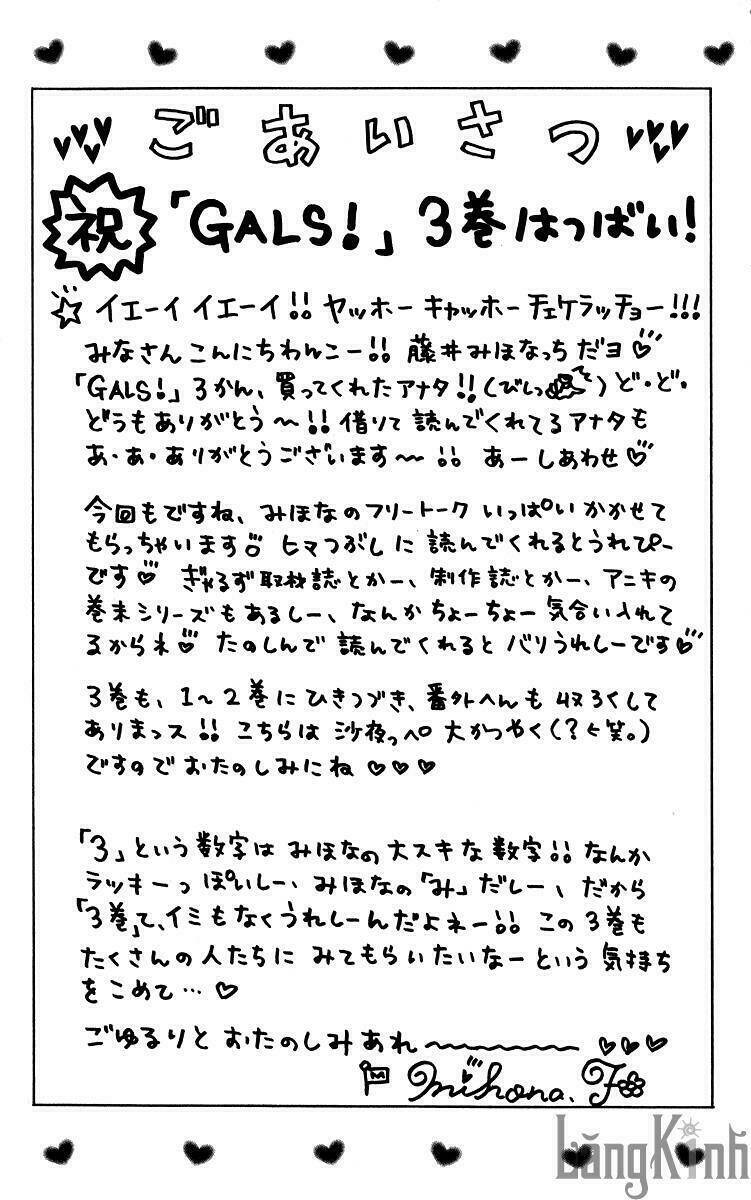 ごあいさつ
祝「GALS!」3巻はつばい!
☆イエーイ イエーイ!! ヤッホー キャッホー チェケラッチョー!!!
みなさんこんにちわんこー!! 藤井みほなっちだヨ♡
「GALS!」3かん、買ってくれたアナタ!!(びしっ)ど・ど・
どうもありがとう〜!! 借りて読んでくれてるアナタも
あ・あ・ありがとうございます〜!! あーしあわせ♡
今回もですね、みほなのフリートークいっぱいかかせて
もらっちゃいます!! ヒマつぶしに読んでくれるとうれぴー
です♡ ぎゃるず取材誌とかー、制作誌とかー、アニキの
巻末シリーズもあるしー、なんかちょーちょー気合い入れて
るからネ♡ たのしんで読んでくれるとバリうれしーです♡
3巻も、1〜2巻にひきつづき、番外へんも収ろくして
ありまっス!! こちらは沙夜っペ大かつやく(?←笑。)
ですのでおたのしみにね♡♡♡
「3」という数字はみほなの大スキな数字!! なんか
ラッキーっぽいしー、みほなの「み」だしー、だから
「3巻」て、イミもなくうれしーんだよネー!! この3巻も
たくさんの人たちにみてもらいたいなーという気持ち
をこめて…♡
ごゆるりとおたのしみあれ〜 ♡♡♡
M Mihona.F
LăngKính